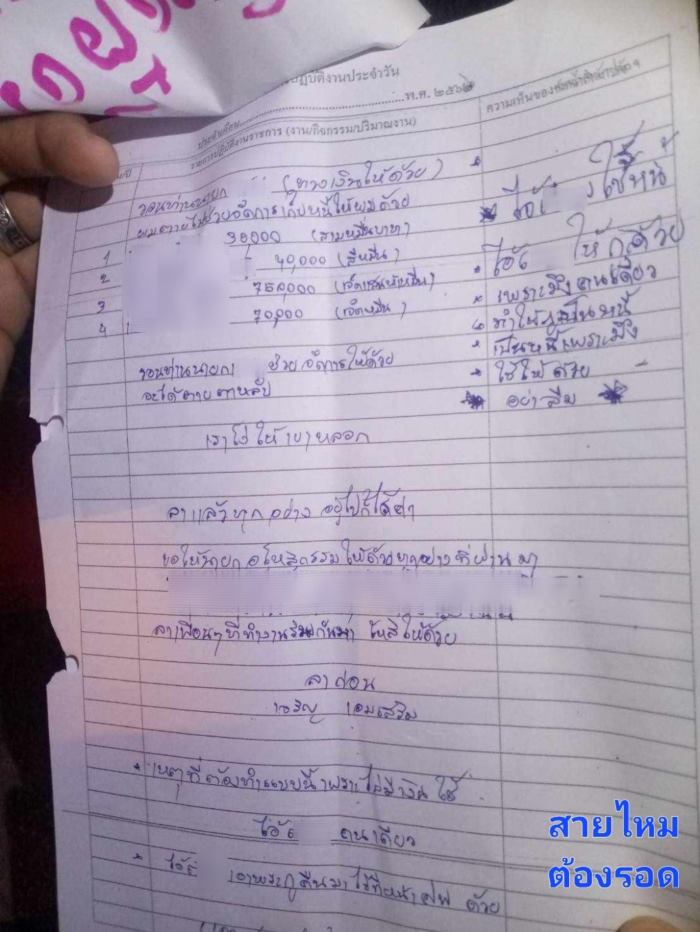 ปฏิบัติงานประจำวัน
พ.ศ. ๒๕๖
รายการปฏิบัติงานราชการ (งาน/กิจกรรม/ปริมาณงาน)
ความเห็นของ
ขอท่านนายก (ทวงเงินให้ด้วย)
ช่วยจัดการเก็บหนี้ให้ผมด้วย
1 30000 (สามหมื่นบาท)
2 40,000 (สี่หมื่น)
3 750,000 (เจ็ดแสนห้าหมื่น)
4 70,000 (เจ็ดหมื่น)
ขอท่านนายก ช่วยจัดการให้ด้วย
จะได้ตายตาหลับ
ใช้หนี้
ให้กูด้วย
เพราะมึงคนเดียว
ทำให้กูเป็นหนี้
เป็นหนี้เพราะมึง
ใช้ให้ด้วย
อย่าลืม
เราโง่ให้เขาหลอก
ลาแล้วทุกอย่าง อยู่ไปก็ไร้ค่า
ขอให้นายกอโหสิกรรมให้ด้วยทุกอย่างที่ผ่านมา
ลาเพื่อนๆที่ทำงานร่วมกันมา โหสิให้ด้วย
ลาก่อน
เจริญ เอมเสริม
* เหตุที่ต้องทำแบบนี้เพราะไม่มีเงินใช้
ไอ้ คนเดียว
* ไอ้ เอาพระกูคืนมาไว้ที่หน้าศพ ด้วย
สายไหม
ต้องรอด